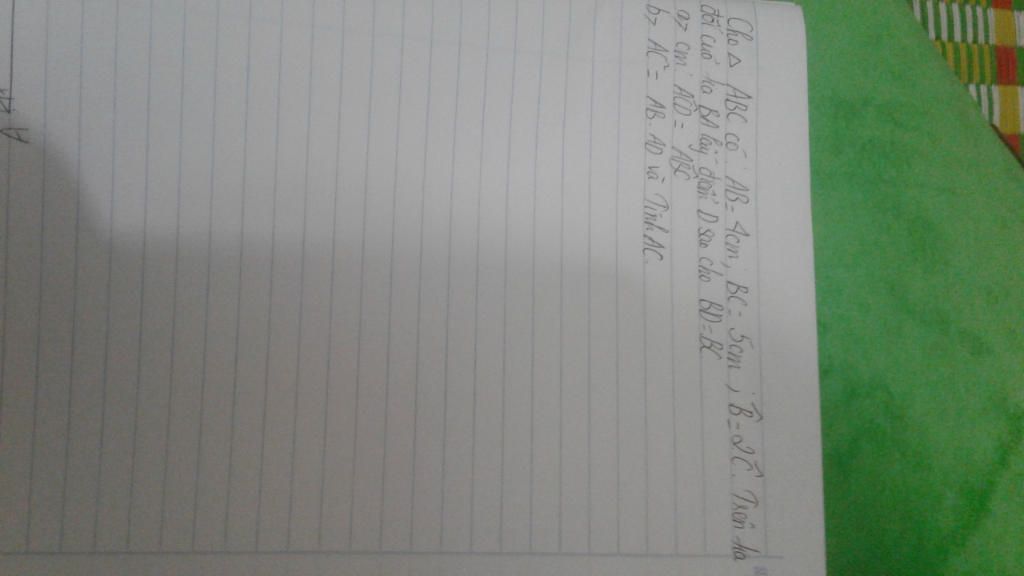 Cho △ ABC có AB = 4cm; BC = 5cm; B̂ = 2Ĉ. Trên tia
đối của tia BA lấy điểm D sao cho BD = BC
a> cm: AĈD = AB̂C
b> AC² = AB. AD và Tính AC.